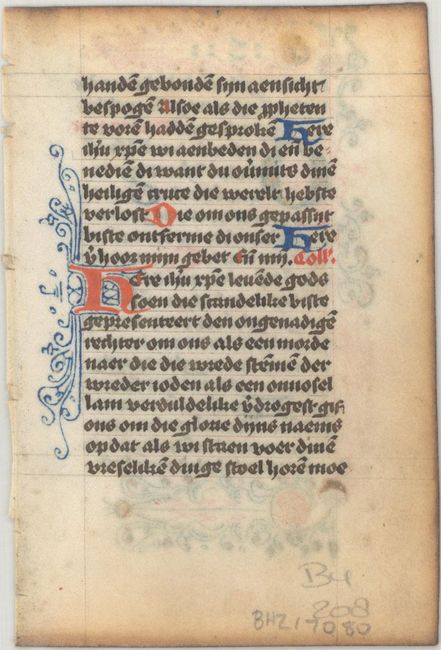 handē gebondē sijn aensicht
bespogē Alsoe als die ꝓpheten
te vorē haddē gesprokē Here
ihū xp̄e wi aenbeden di en̄ be-
nediē di want du ouermits dinē
heiligē cruce die werelt hebste
verlost Die om ons gepassijt
biste ontferme di onser Here
v̄hoor mijn gebet En̄ mij. Coll'.
Here ihū xp̄e leuēde gods
soen die scandelike biste
gepresenteert den ongenadigē
rechter om ons als een morde
naer die die wrede stēmen der
wreder ioden als een onnosel
lam verduldelike v̄drogest gif
ons om die glorie dijns naems
op dat als wi staen voer dinē
vreselikē dinge stoel horēn moe
BHZ 1 70 80
208